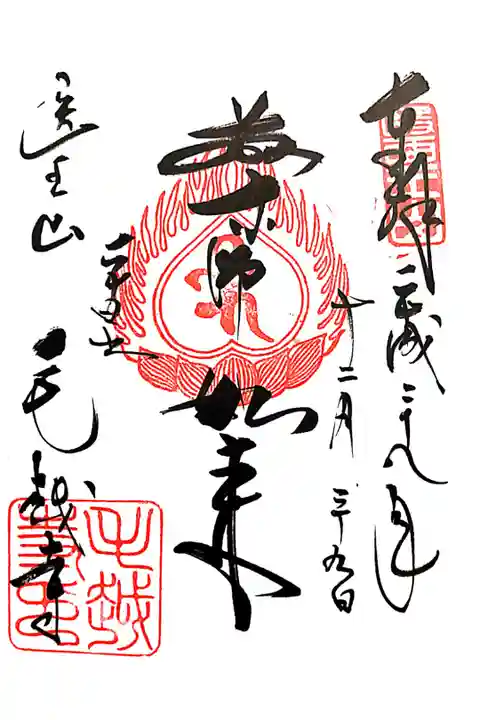 奉拝 平成二十八年
十二月二十九日
薬師如来
醫王山
毛越寺
毛越寺印